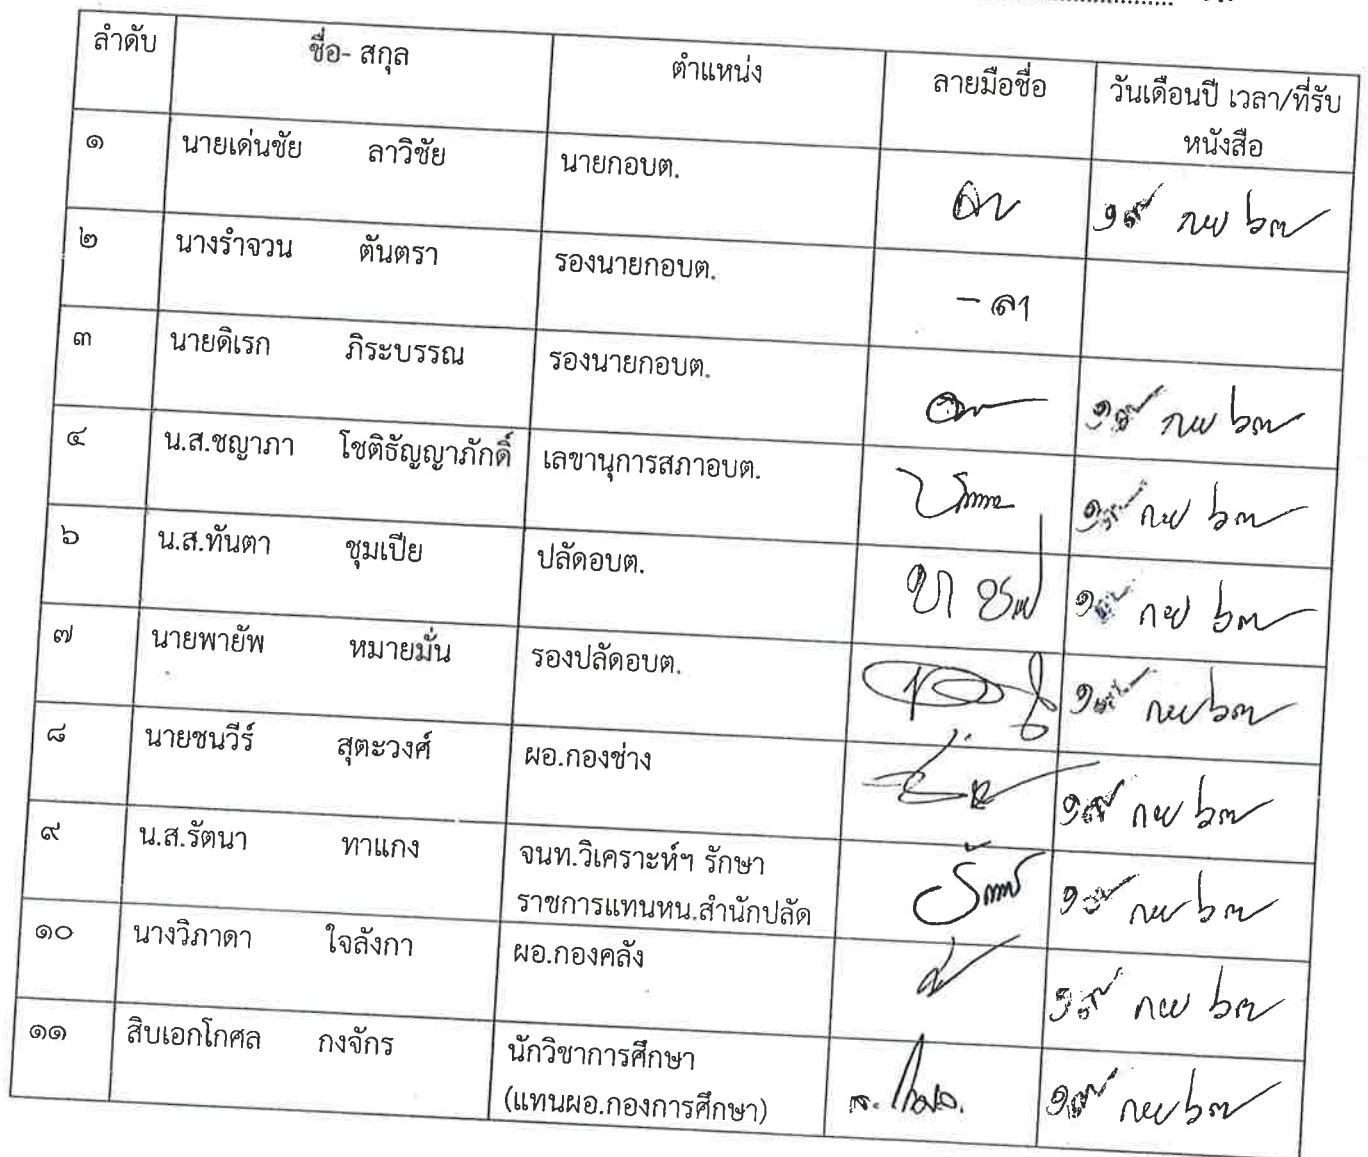 ลำดับ ชื่อ- สกุล ตำแหน่ง ลายมือชื่อ วันเดือนปี เวลา/ที่รับ
หนังสือ
๑ นายเด่นชัย ลาวิชัย นายกอบต. กย ๖๓
๒ นางรำจวน ตันตรา รองนายกอบต. - ลา
๓ นายดิเรก ภิระบรรณ รองนายกอบต. กย ๖๓
๔ น.ส.ชญาภา โชติธัญญาภักดิ์ เลขานุการสภาอบต. กย ๖๓
๖ น.ส.ทันตา ชุมเปีย ปลัดอบต. กย ๖๓
๗ นายพายัพ หมายมั่น รองปลัดอบต. กย ๖๓
๘ นายชนวีร์ สุตะวงศ์ ผอ.กองช่าง กย ๖๓
๙ น.ส.รัตนา ทาแกง จนท.วิเคราะห์ฯ รักษา กย ๖๓
ราชการแทนหน.สำนักปลัด
๑๐ นางวิภาดา ใจลังกา ผอ.กองคลัง กย ๖๓
๑๑ สิบเอกโกศล กงจักร นักวิชาการศึกษา กย ๖๓
(แทนผอ.กองการศึกษา)